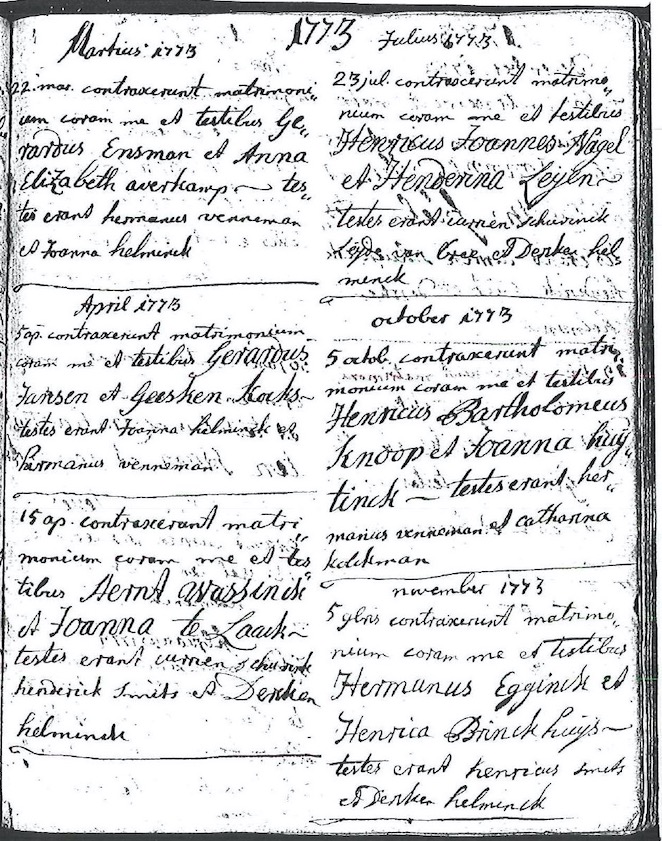 1773
Martius 1773
22 mar. contraxerunt matrimoni„
um coram me et testibus Ge„
rardus Ensman et Anna
Elizabeth averkamp — tes„
tes erant hermanus venneman
et Joanna helminck
April 1773
5 ap. contraxerunt matrimonium
coram me et testibus Gerardus
Jansen et Geesken Kocks —
testes erant Joanna helminck et
hermanus venneman
15 ap. contraxerunt matri„
monium coram me et tes„
tibus Aernt Wassinck
et Joanna te Laack —
testes erant schurinck
henderick Smits et Dersken
helminck
Julius 1773
23 jul. contraxerunt matrimo„
nium coram me et testibus
Henricus Joannes Nagel
et Henderina Leyen —
testes erant schurinck
van bree et Dersken hel„
minck
october 1773
5 octob. contraxerunt matri„
monium coram me et testibus
Henricus Bartholomeus
Knoop et Joanna huy„
tinck — testes erant her„
manus venneman et Catharina
kolckman
november 1773
5 9bris contraxerunt matrimo„
nium coram me et testibus
Hermanus Egginck et
Henrica Brinckhuys —
testes erant henricus smits
et Dersken helminck